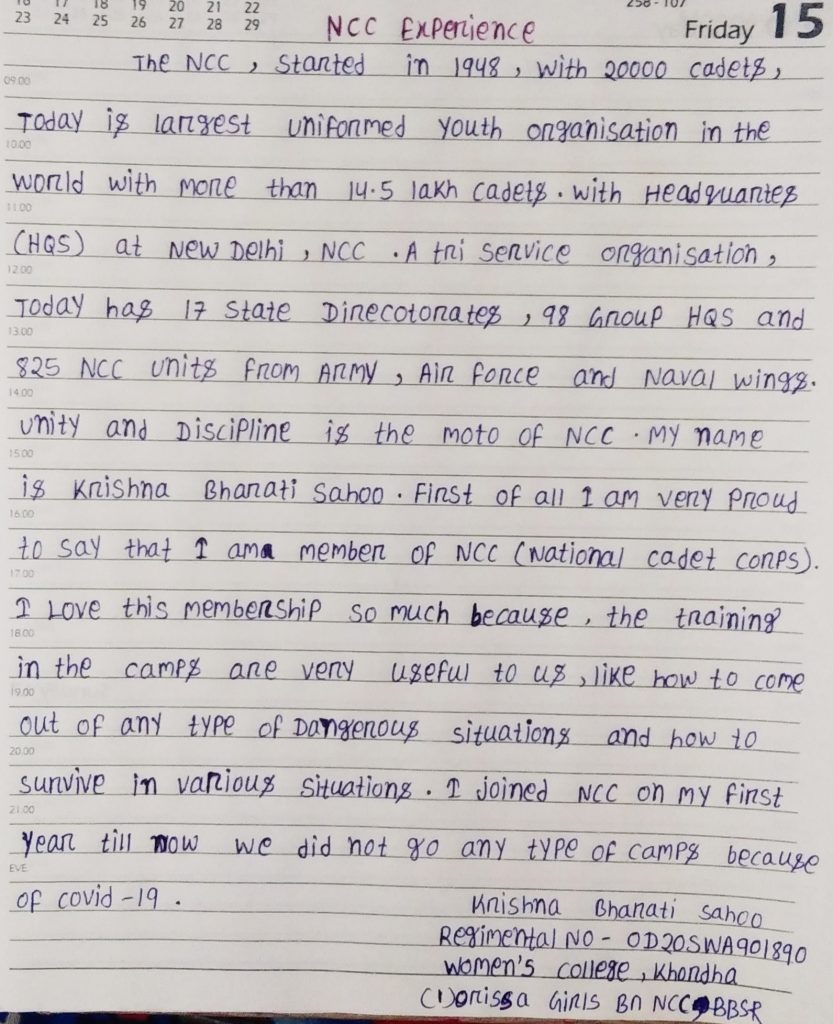 16 17 18 19 20 21 22
23 24 25 26 27 28 29
258-107
Friday 15
NCC Experience
The NCC, Started in 1948, with 20000 cadets,
09.00
Today is largest uniformed youth organisation in the
10.00
world with more than 14.5 lakh cadets. with Headquartes
11.00
(HQS) at New Delhi, NCC. A tri service organisation,
12.00
Today has 17 State Direcotorates, 98 Group HQS and
13.00
825 NCC units from Army, Air force and Naval wings.
14.00
unity and Discipline is the moto of NCC. My name
15.00
is Krishna Bharati Sahoo. First of all I am very proud
16.00
to say that I am a member of NCC (National cadet corps).
17.00
I Love this membership so much because, the training
18.00
in the camps are very useful to us, like how to come
19.00
out of any type of Dangerous situations and how to
20.00
survive in various situations. I joined NCC on my first
21.00
year till now we did not go any type of camps because
EVE
of covid-19.
Krishna Bharati Sahoo
Regimental NO - OD20SWA901890
Women's college, Khordha
(1) orissa Girls Bn NCC BBSR